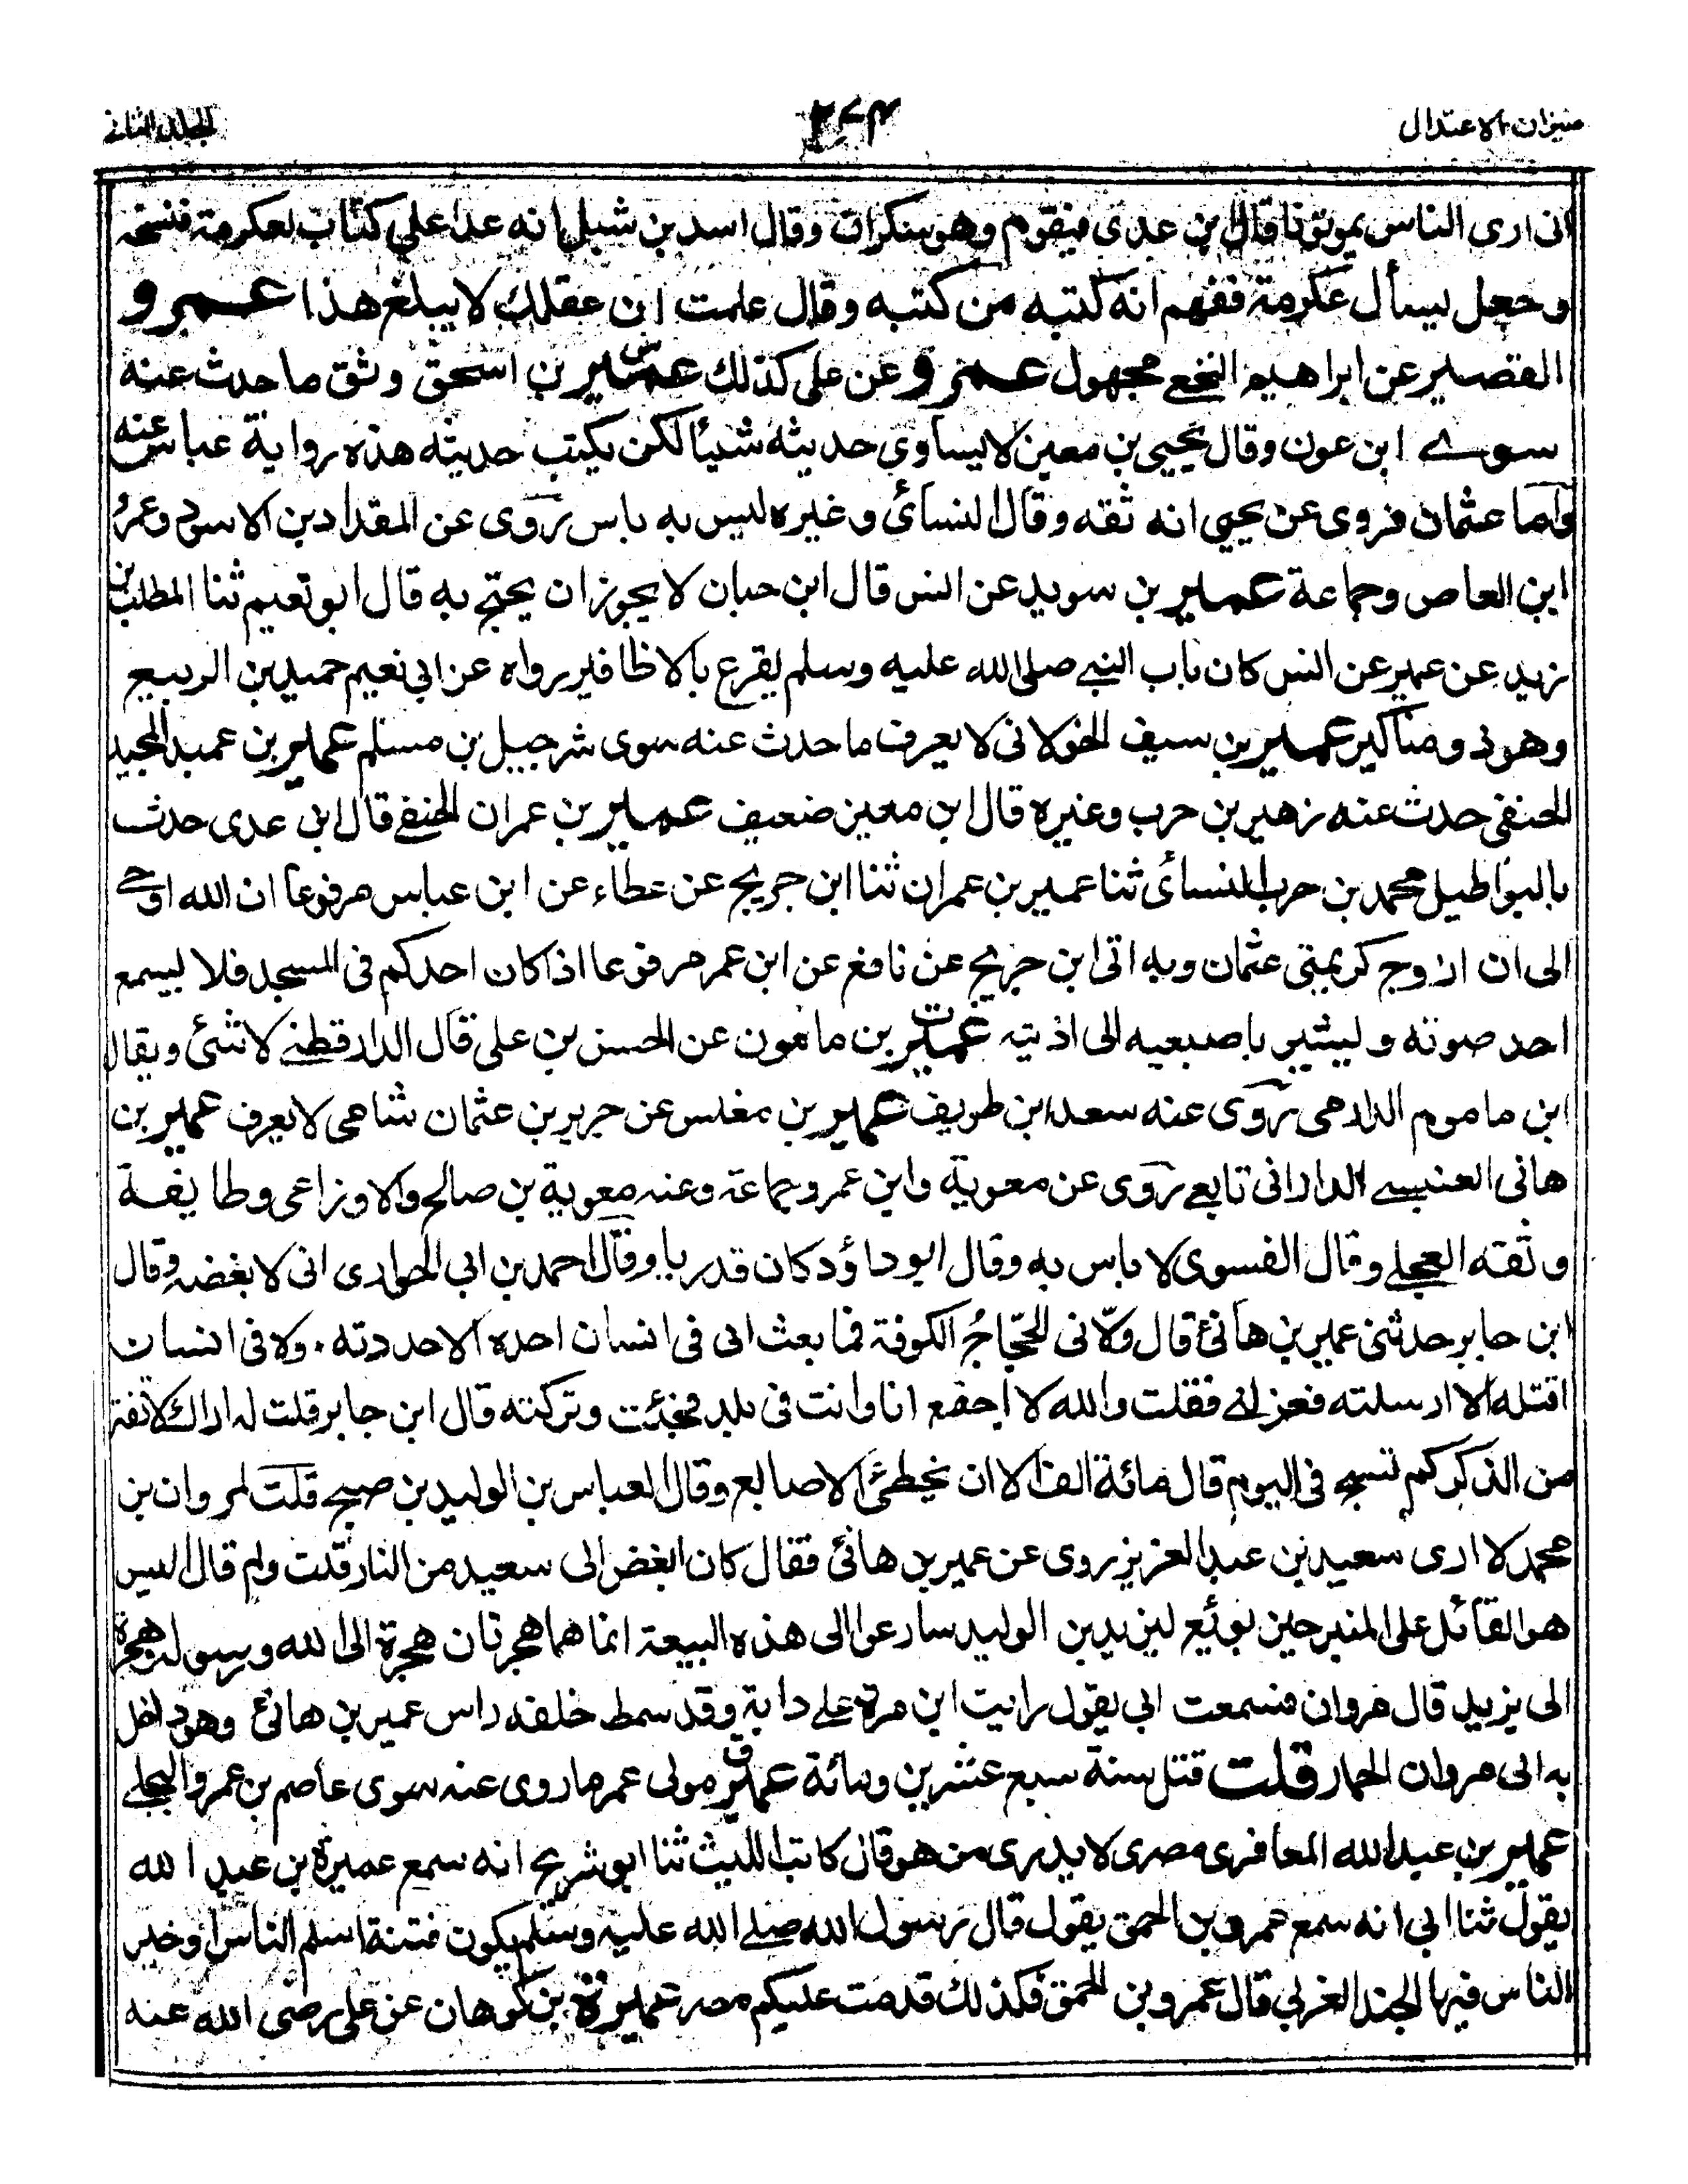 ميزان الاعتدال
٢٧٤
الجلد الثانے
انى ارى الناس يموتون قال ابن عدى فيقوم وهو سكران وقال اسد بن شبل انه عدا على كتاب لعكرمة فنسخه
وجعل يسأل عكرمة ففهم انه كتبه من كتبه وقال علمت ان عقلك لا يبلغ هذا عمرو
القصير عن ابراهيم النخعے مجهول عمرو عن على كذلك عمير بن اسحق وثق ما حدث عنه
سوے ابن عون وقال يحيى بن معين لا يساوى حديثه شيئا لكن يكتب حديثه هذه رواية عباس عنه
واما عثمان فروى عن يحيى انه ثقه وقال النسائى وغيره ليس به باس روى عن المقداد بن الاسود وعمرو
ابن العاص وجماعة عمير بن سويد عن انس قال ابن حبان لا يجوز ان يحتج به قال ابو نعيم ثنا المطلب بن
زيد عن عمير عن انس كان باب النبے صلى الله عليه وسلم يقرع بالاظافير رواه عن ابى نعيم حميد بن الربيع
وهو ذو مناكير عمير بن سيف الخولانى لا يعرف ما حدث عنه سوى شرحبيل بن مسلم عمير بن عبد المجيد
الحنفى حدث عنه زهير بن حرب وغيره قال ابن معين ضعيف عمير بن عمران الحنفے قال ابن عدى حدث
بالبواطيل محمد بن حرب النسائى ثنا عمير بن عمران ثنا ابن جريج عن عطاء عن ابن عباس مرفوعا ان الله اوحے
الى ان ازوج كريمتى عثمان وبه اتى ابن جريج عن نافع عن ابن عمر مرفوعا اذا كان احدكم فى المسجد فلا يسمع
احد صوته وليشير باصبعيه الى اذنيه عمير بن مامون عن الحسن بن على قال الدارقطنے لا شئ ويقال
ابن ماموم الدارمى روى عنه سعد ابن طريف عمير بن مغلس عن حريز بن عثمان شامى لا يعرف عمير بن
هانى العنسے الدارانى تابعے روى عن معوية وابن عمر وجماعة وعنه معوية بن صالح والاوزاعى وطايفة
وثقه العجلے وقال الفسوى لا باس به وقال ابو داؤد كان قدريا وقال احمد بن ابى الحوارى انى لابغضه وقال
ابن جابر حدثنى عمير بن هانئ قال ولّانى الحجّاجُ الكوفة فما بعث الى فى انسان احده الا حددته ولا فى انسان
اقتله الا ارسلته فعزلنے فقلت والله لا اجتمع انا وانت فى بلد فجئت وتركته قال ابن جابر قلت له اراك لا تفتر
من الذكر كم تسبح فى اليوم قال مائة الف الا ان تخطئ الاصابع وقال العباس بن الوليد بن صبح قلت لمروان بن
محمد لا ارى سعيد بن عبد العزيز روى عن عمير بن هانئ فقال كان ابغض الى سعيد من النار قلت ولم قال اليس
هو القائل على المنبر حين بوئع ليزيد بن الوليد سارعوا الى هذه البيعة انما هما هجرتان هجرة الى الله ورسوله وهجرة
الى يزيد قال مروان فسمعت ابى يقول رايت ابن مرة على دابة وقد سمط خلفه راس عمير بن هانئ وهو داخل
به الى مروان الحمار قلت قتل سنة سبع عشرين ومائة عمير مولى عمر ما روى عنه سوى عاصم بن عمرو البجلے
عمير بن عبد الله المعافرى مصرى لا يدرى من هو قال كاتب الليث ثنا ابو شريح انه سمع عميرة بن عبد الله
يقول ثنا ابى انه سمع عمرو بن الحمق يقول قال رسول الله صلے الله عليه وسلم يكون فتنة اسلم الناس او خير
الناس فيها الجند الغربى قال عمرو بن الحمق فكذلك قدمت عليكم مصر عميرة بن كوهان عن على رضى الله عنه